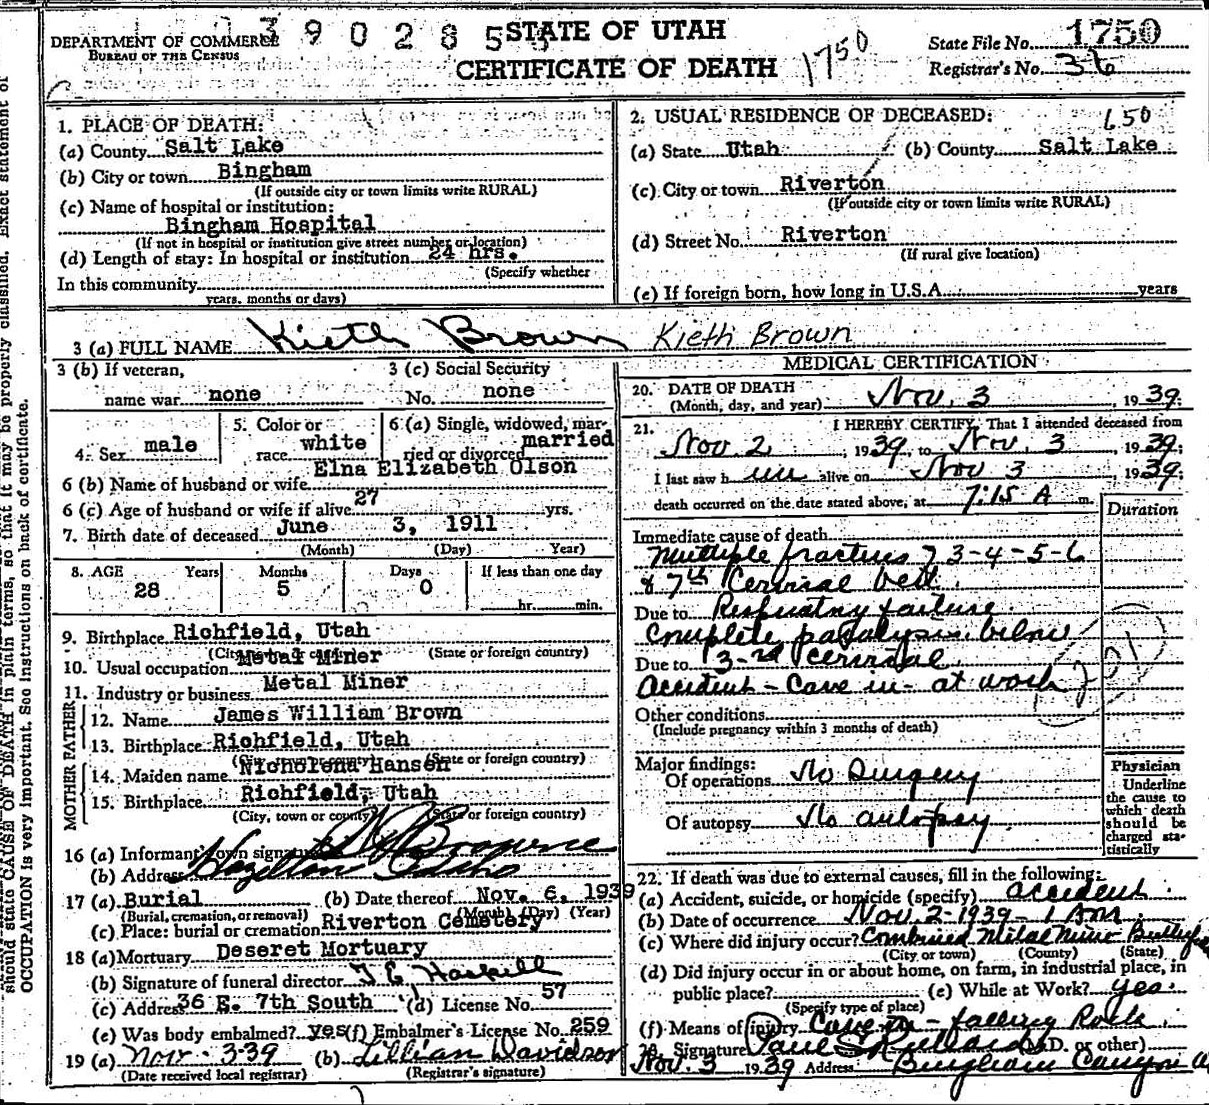 390285
STATE OF UTAH
CERTIFICATE OF DEATH
DEPARTMENT OF COMMERCE
BUREAU OF THE CENSUS
1750
State File No. 1750
Registrar's No. 36
1. PLACE OF DEATH:
(a) County Salt Lake
(b) City or town Bingham
(If outside city or town limits write RURAL)
(c) Name of hospital or institution:
Bingham Hospital
(If not in hospital or institution give street number or location)
(d) Length of stay: In hospital or institution 24 hrs.
(Specify whether
In this community
years, months or days)
2. USUAL RESIDENCE OF DECEASED:
650
(a) State Utah (b) County Salt Lake
(c) City or town Riverton
(If outside city or town limits write RURAL)
(d) Street No. Riverton
(If rural give location)
(e) If foreign born, how long in U.S.A. years
3 (a) FULL NAME Kieth Brown Kieth Brown
3 (b) If veteran,
name war none
3 (c) Social Security
No. none
4. Sex male
5. Color or
race white
6 (a) Single, widowed, mar-
ried or divorced married
Elna Elizabeth Olson
6 (b) Name of husband or wife
6 (c) Age of husband or wife if alive 27 yrs.
7. Birth date of deceased June 3, 1911
(Month) (Day) Year)
8. AGE Years Months Days If less than one day
28 5 0 hr. min.
9. Birthplace Richfield, Utah
(State or foreign country)
10. Usual occupation Metal Miner
11. Industry or business Metal Miner
FATHER
12. Name James William Brown
13. Birthplace Richfield, Utah
(City, town or county) (State or foreign country)
MOTHER
14. Maiden name Nicholena Hansen
15. Birthplace Richfield, Utah
(City, town or county) (State or foreign country)
16 (a) Informant's own signature Browne
(b) Address Hazelton Idaho
17 (a) Burial (b) Date thereof Nov. 6, 1939
(Burial, cremation, or removal) (Month) (Day) (Year)
(c) Place: burial or cremation Riverton Cemetery
18 (a) Mortuary Deseret Mortuary
(b) Signature of funeral director
(c) Address 36 E. 7th South (d) License No. 57
(e) Was body embalmed? yes (f) Embalmer's License No. 259
19 (a) Nov - 3-39 (b) Lillian Davidson
(Date received local registrar) (Registrar's signature)
MEDICAL CERTIFICATION
20. DATE OF DEATH
(Month, day, and year) Nov. 3, 1939;
21. I HEREBY CERTIFY, That I attended deceased from
Nov. 2, 1939, to Nov. 3, 1939;
I last saw h im alive on Nov 3, 1939;
death occurred on the date stated above, at 7:15 A m.
Duration
Immediate cause of death
Multiple fractures 3-4-5-6
& 7th Cervical
Due to Respiratory failure
Complete paralysis below
Due to 3-rd cervical
Accident - Cave in - at work
201
Other conditions
(Include pregnancy within 3 months of death)
Major findings:
Of operations No Surgery
Of autopsy No autopsy.
Physician
Underline
the cause to
which death
should be
charged sta-
tistically
22. If death was due to external causes, fill in the following:
(a) Accident, suicide, or homicide (specify) accident.
(b) Date of occurrence Nov. 2-1939-
(c) Where did injury occur? Combined Metal Mine
(City or town) (County) (State)
(d) Did injury occur in or about home, on farm, in industrial place, in
public place? (e) While at Work? yes.
(Specify type of place)
(f) Means of injury Cave in - falling Rock.
Signature Paul S Richards (M.D. or other)
Nov. 3 1939 Address Bingham Canyon
should state CAUSE OF DEATH in plain terms, so that it may be properly classified. Exact statement of
OCCUPATION is very important. See instructions on back of certificate.